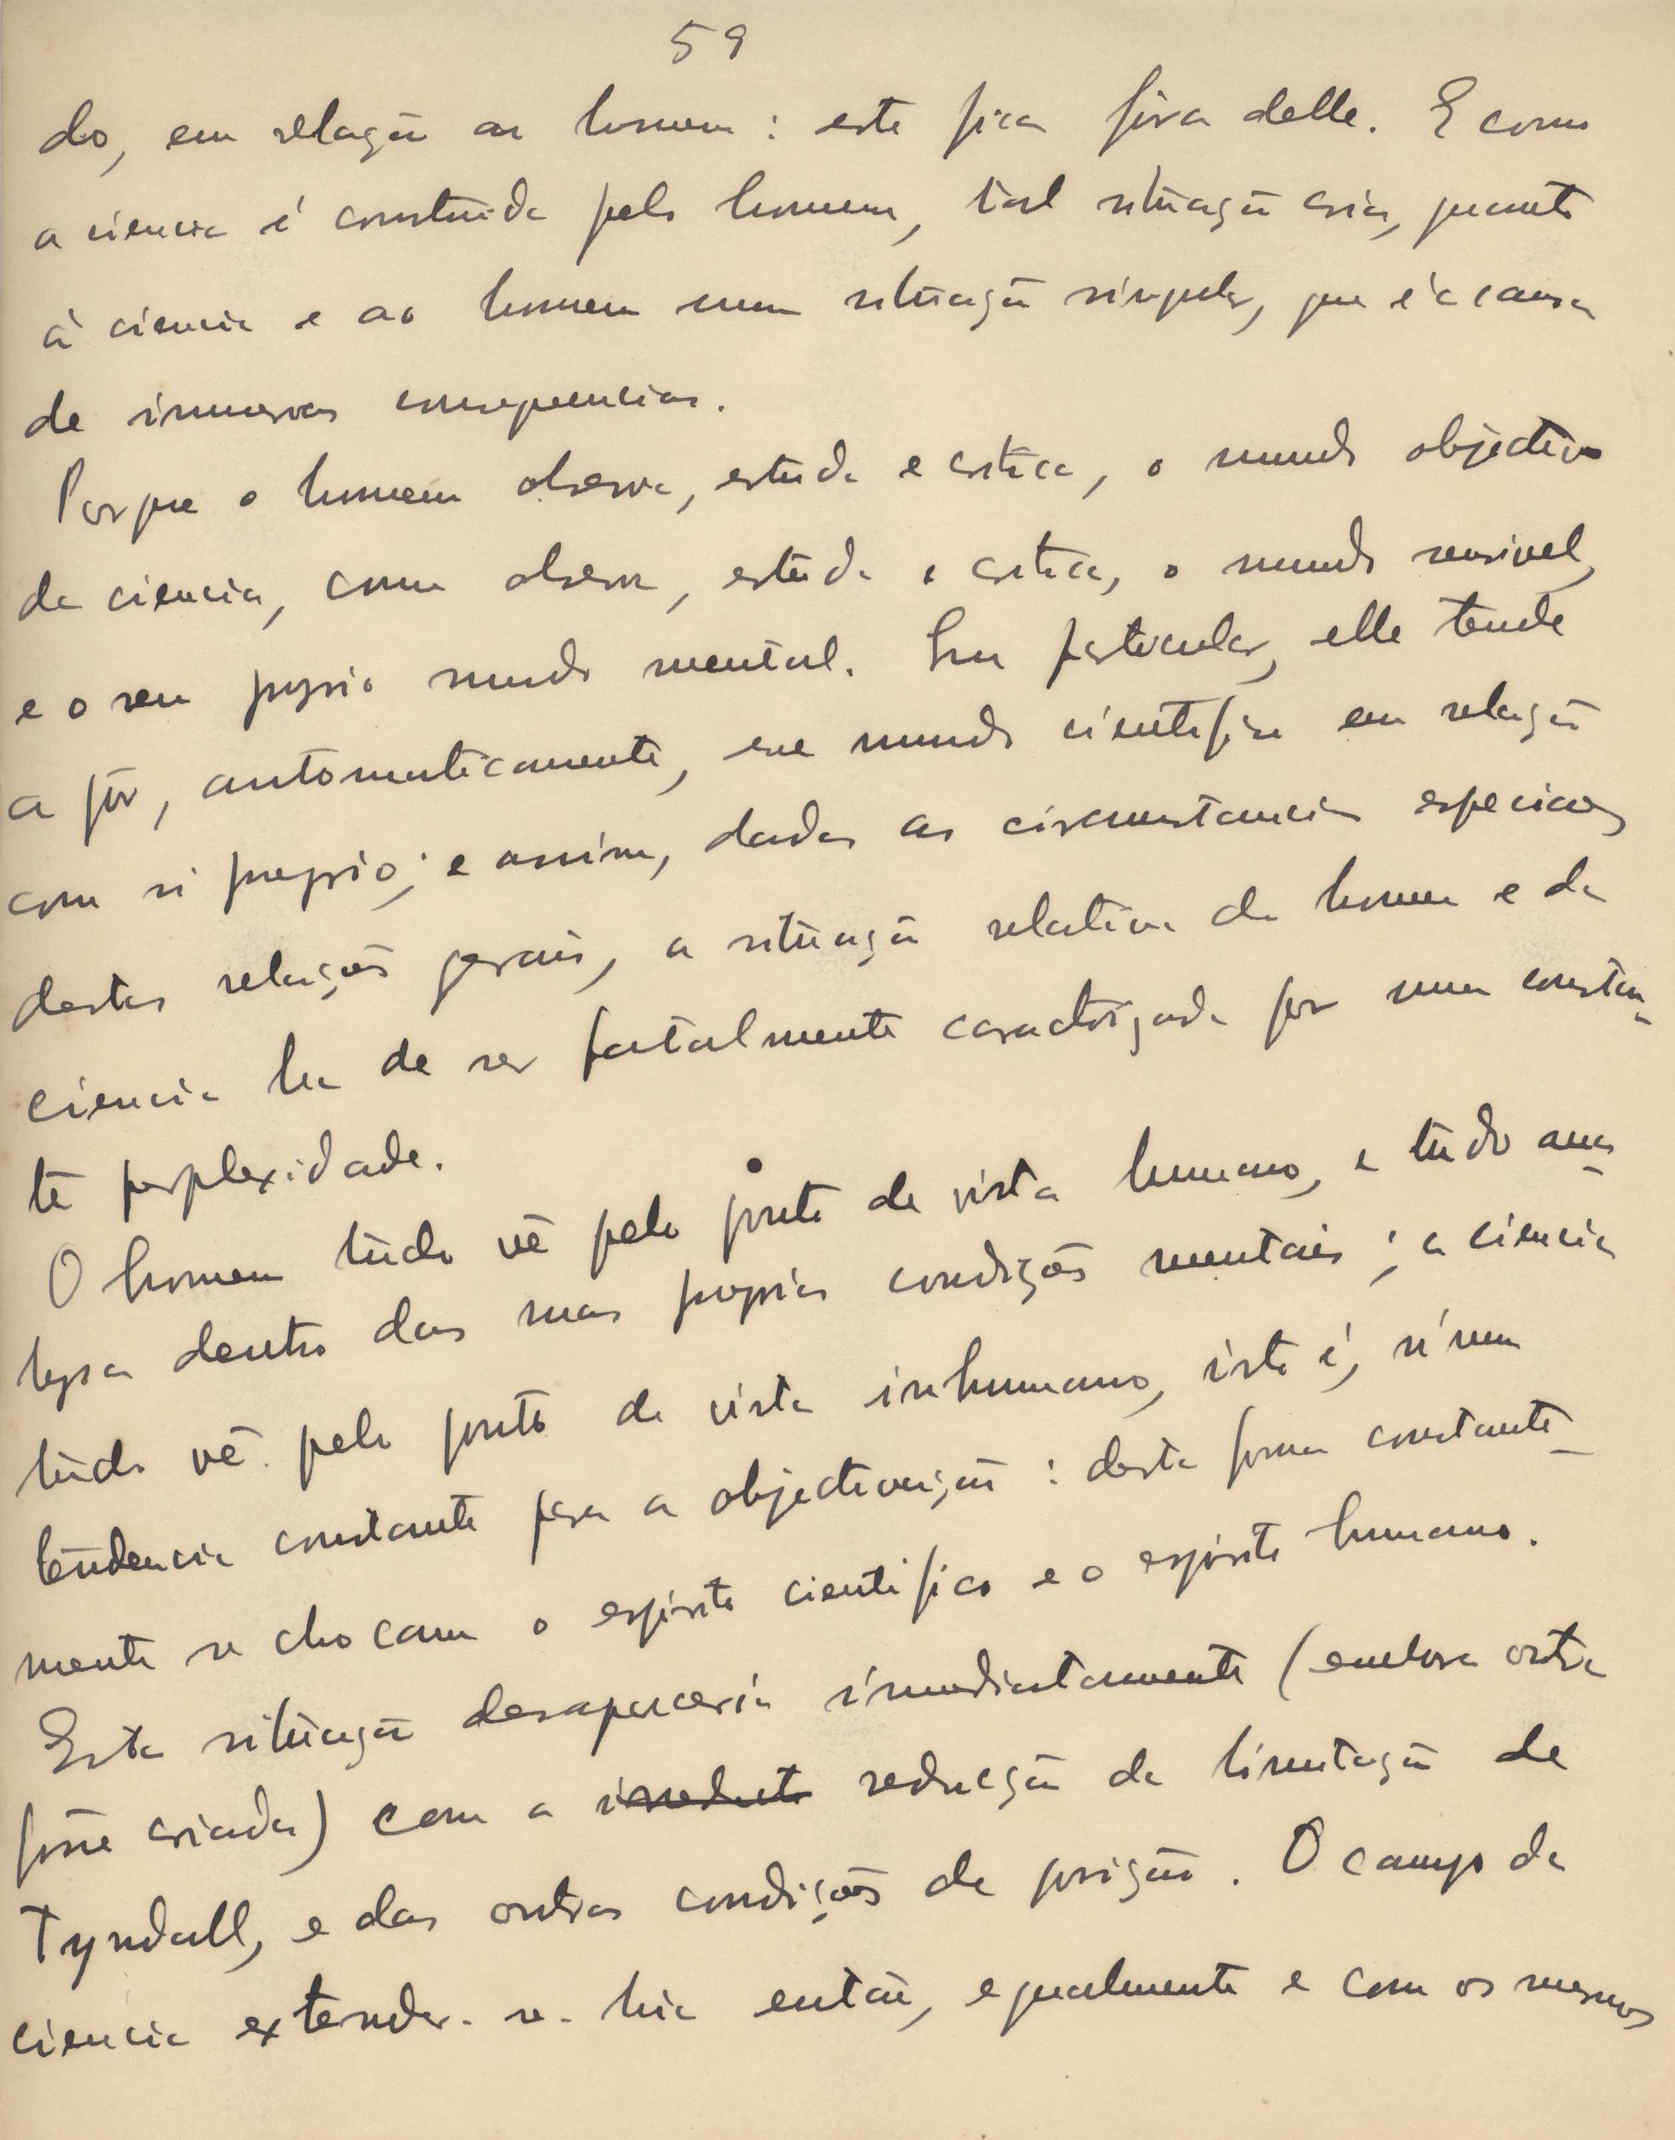 59
do, em relação ao homem: este fica fóra delle. E como
a ciencia é construida pelo homem, tal situação cria, quanto
á ciencia e ao homem uma situação singular, que é a causa
de inumeras consequencias.
Porque o homem observa, estuda e critica, o mundo objectivo
da ciencia, como observa, estuda e critica, o mundo sensivel,
e o seu proprio mundo mental. Em particular, elle tende
a pôr, automaticamente, esse mundo cientifico em relação
com si proprio; e assim, dadas as circumstancias especiaes
destas relações gerais, a situação relativa do homem e da
ciencia ha de ser fatalmente caracterizada por uma constan-
te perplexidade.
O homem tudo vê pelo ponto de vista humano, e tudo ana-
lysa dentro das suas proprias condições mentais; a ciencia
tudo vê pelo ponto de vista inhumano, isto é, n'uma
tendencia constante para a objectivação: desta forma constante-
mente se chocam o espirito cientifico e o espirito humano.
Esta situação desapareceria immediatamente (embora outra
fosse criada) com a irreducto redução da limitação de
Tyndall, e das outras condições de posição. O campo da
ciencia extender-se-hia então, egualmente e com os mesmos